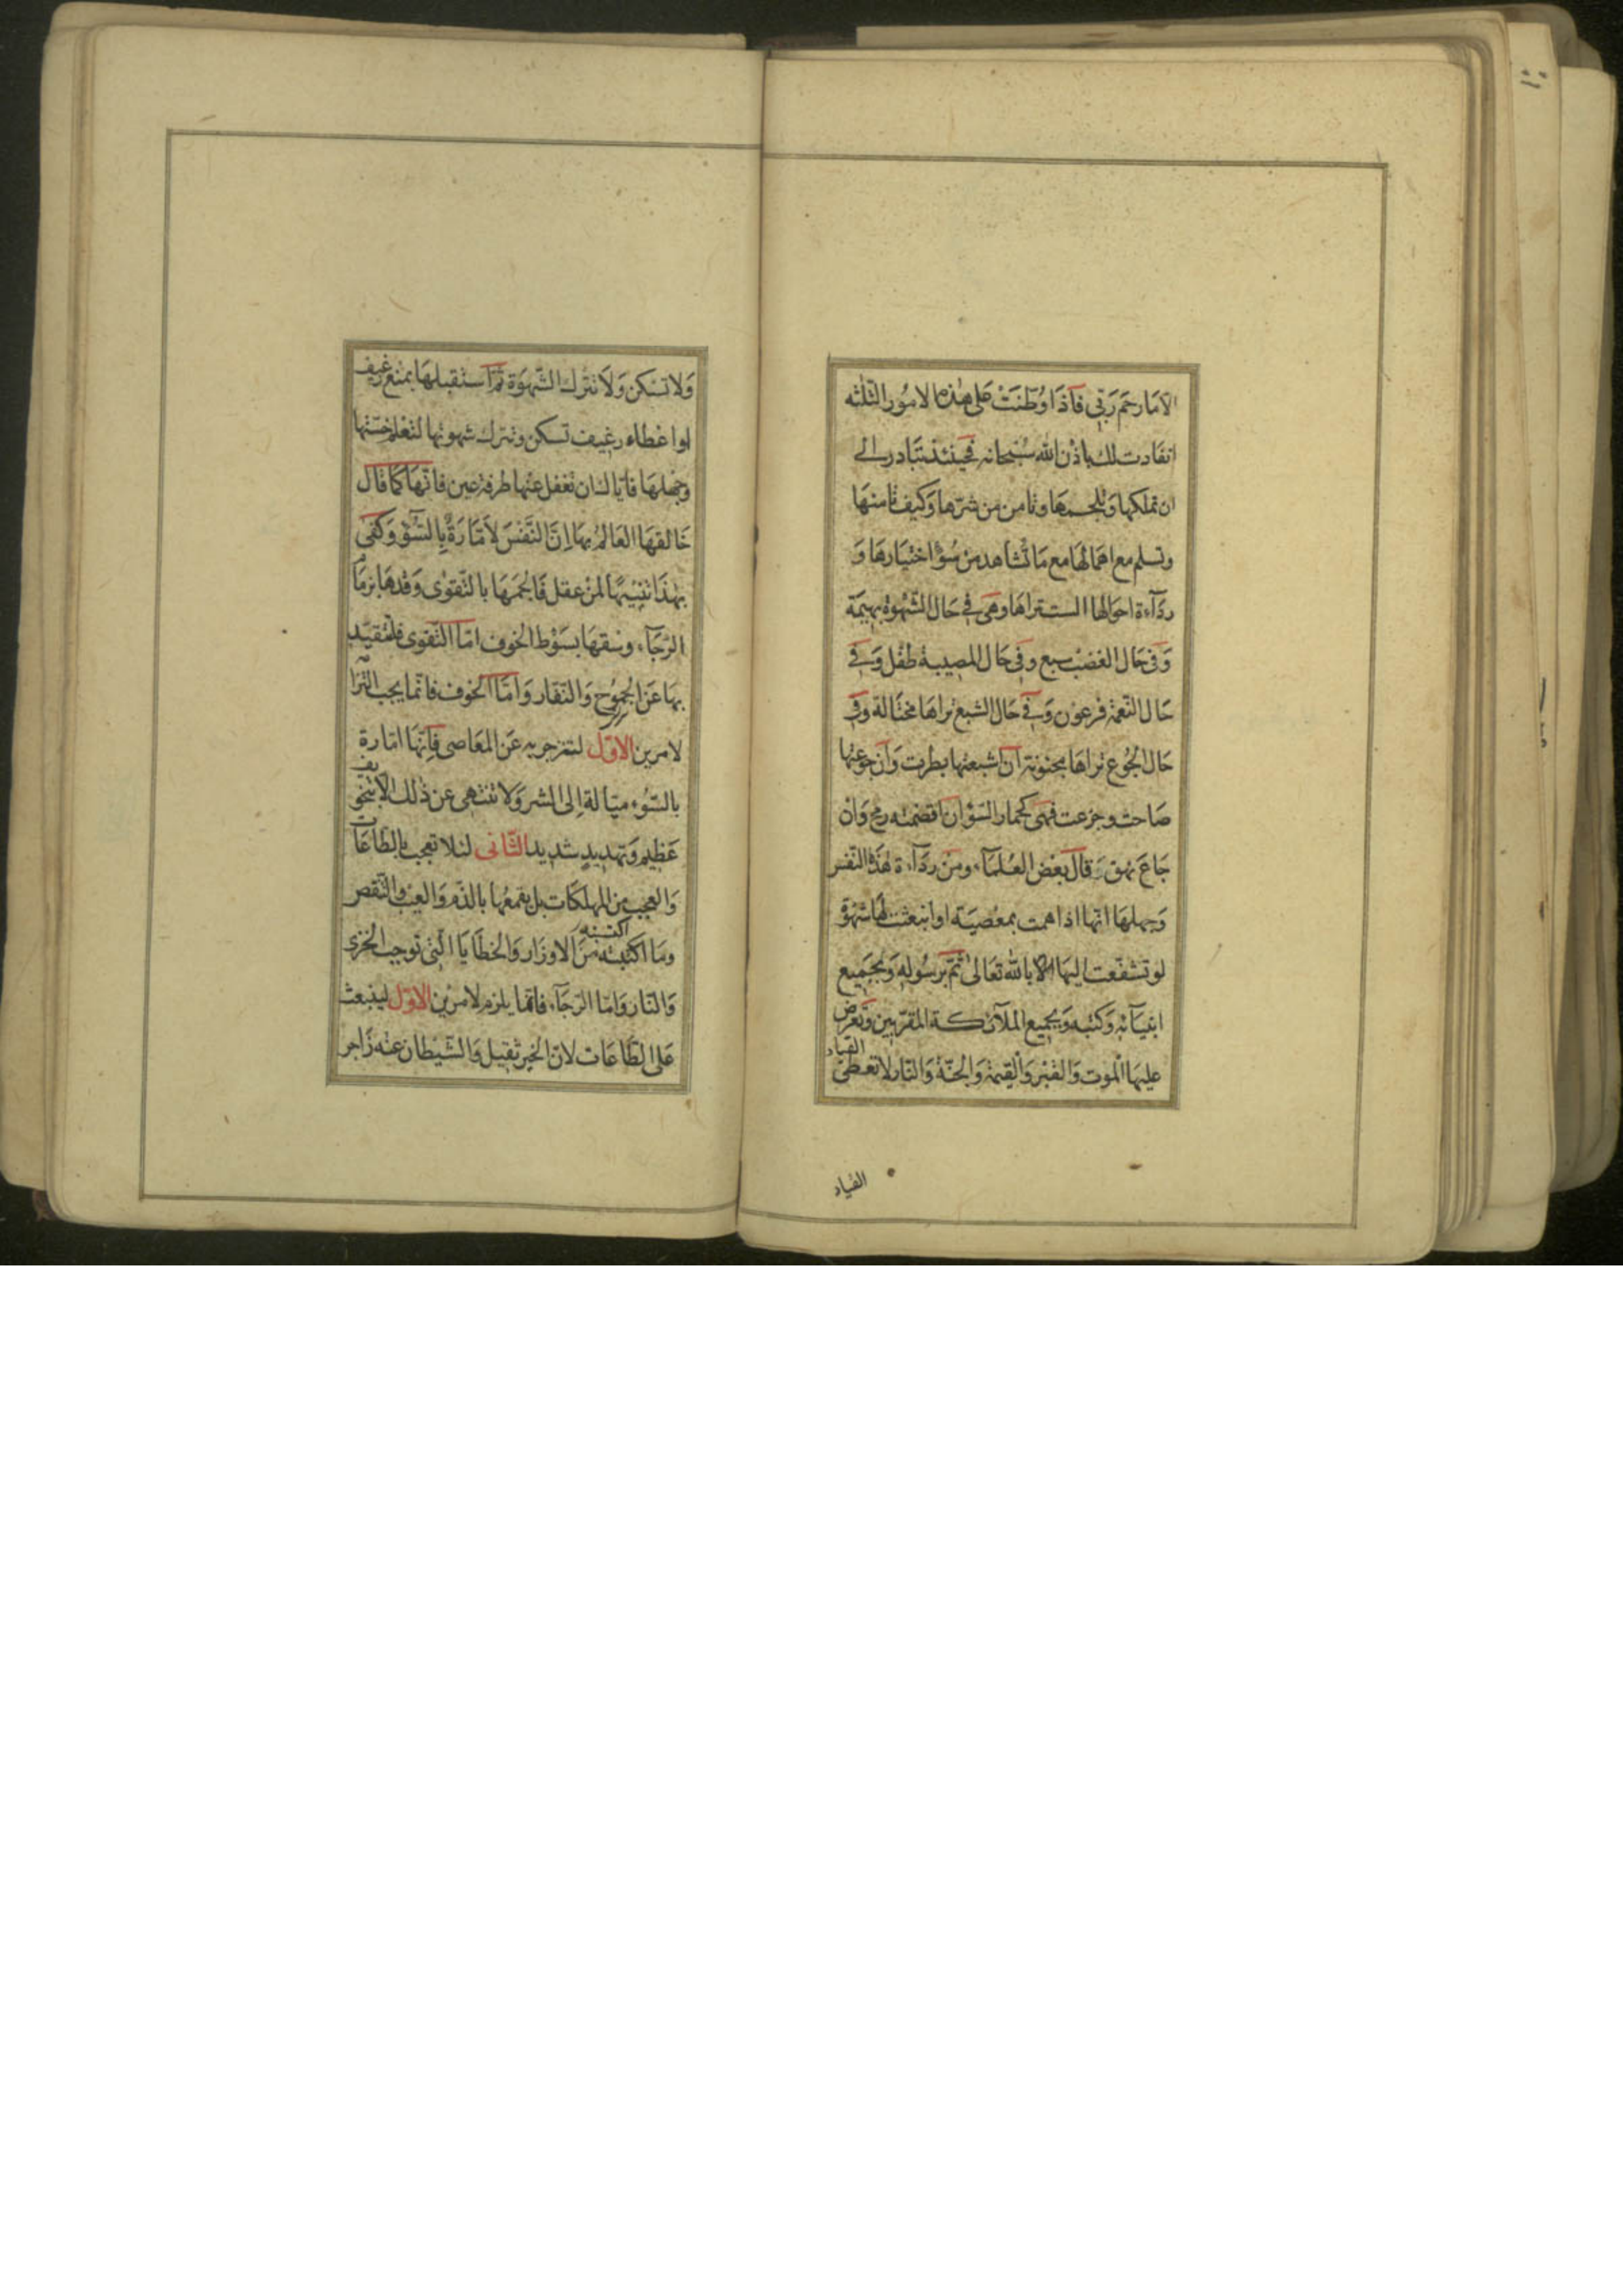 الا ما رحم ربّي فاذا وُطّنَتْ على هٰذه الامُور الثلٰثه
انقادت لك باذْن الله سُبْحانه فحينئذ تتبادر الى
ان تملكها وتلجمها وتامن من شرّها وكيف تامنها
وتسلم مع اهمالها مع ما تُشاهد من سُوْٓ اختيارها وَ
ردآءة احوالها الست تراها وهى فى حال الشّهْوة بهيمة
وَفى حال الغضب سبع وفى حال المصيبة طفل وَفى
حال النّعمة فرعون وَفى حال الشبع تراها مختالة وفى
حال الجُوع تراها مجنونة ان اشبعتها بطرت وَان جوعتها
صاحت وجزعت فهى كحمار السّوْٓ ان اقضمته رمح وَانْ
جاعَ نهق قالَ بعْض العُلمآء ومنْ ردآءة هٰذه النّفس
وَجهلها انّها اذا همت بمعْصيَة او انبعثت لها شهْوة
لو تشفّعت اليها بالله تعالىٰ ثمّ برسُوله وَبجَميع
انبيآئه وَكتبه وَبجميع الملآئكة المقرّبين وَتعرض
عليها الموت وَالقبْر وَالقيٰمة وَالجنّة وَالنّار لا تعطى
القياد
القياد
وَلا تسْكن وَلا تترك الشّهوَة ثمّ استقبلها بمنع رغيف
او اعْطاء رغيف تسكن وتترك شهوتها لتعْلم خسّتها
وجهلها فايّاك ان تغفل عنها طرفة عين فانّها كما قال
خالقها العالمُ بها اِنّ النَّفْسَ لاَمّارَةٌ بِالسُّوْٓءِ وَكفىٰ
بهٰذا تنْبيهًا لمنْ عقل فالجمها بالتّقوٰى وَقدها بزمام
الرّجآء وسقها بسَوْط الخوف امّا التّقوى فلتقيّد
بها عَن الجموُح وَالنّفار وَامّا الخوف فانّما يجب التزا
لامرين الاوّل لتنزجر به عَن المعَاصى فاِنّها امّارة
بالسّوُء ميّالة اِلى الشر وَلا تنتهى عن ذٰلك الا بتخويف
عَظيم وتهديدٍ شديد الثّانى لئلا تعجب بالطّاعات
وَالعجب من المهلكات بل يقمعُها بالذّم وَالعيب وَالنّقص
وما اكتسبته منَ الاوزار وَالخطايا الّتى توجب الخزى
اكتسبته
وَالنّار وَامّا الرّجآء فانّما يلزم لامريْن الاوّل لينبعث
على الطّاعات لانّ الخير ثقيل وَالشّيْطان عنْه زَاجر